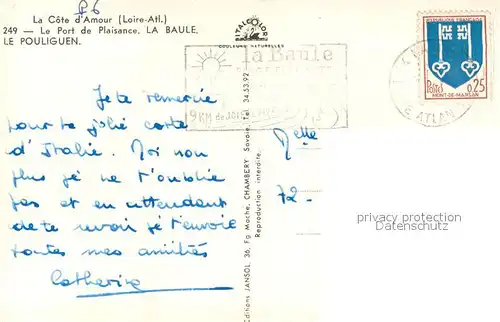 P6
La Côte d'Amour (Loire-Atl.)
249 — Le Port de Plaisance. LA BAULE,
LE POULIGUEN.
VITALCOLOR
COULEURS NATURELLES
la Baule
9 KM de
REPUBLIQUE FRANÇAISE
POSTES 0,25
MONT-DE-MARSAN
ATLAN
Je te remercie
pour ta jolie carte
d'Italie. Moi non
plus je ne t'oublie
pas et en attendant
de te revoir je t'envoie
toutes mes amitiés
Catherine
Editions JANSOL, 36, Fg Mache, CHAMBERY Savoie. Tel 34.53.92
Reproduction interdite.
Melle
72 -
privacy protection
Datenschutz